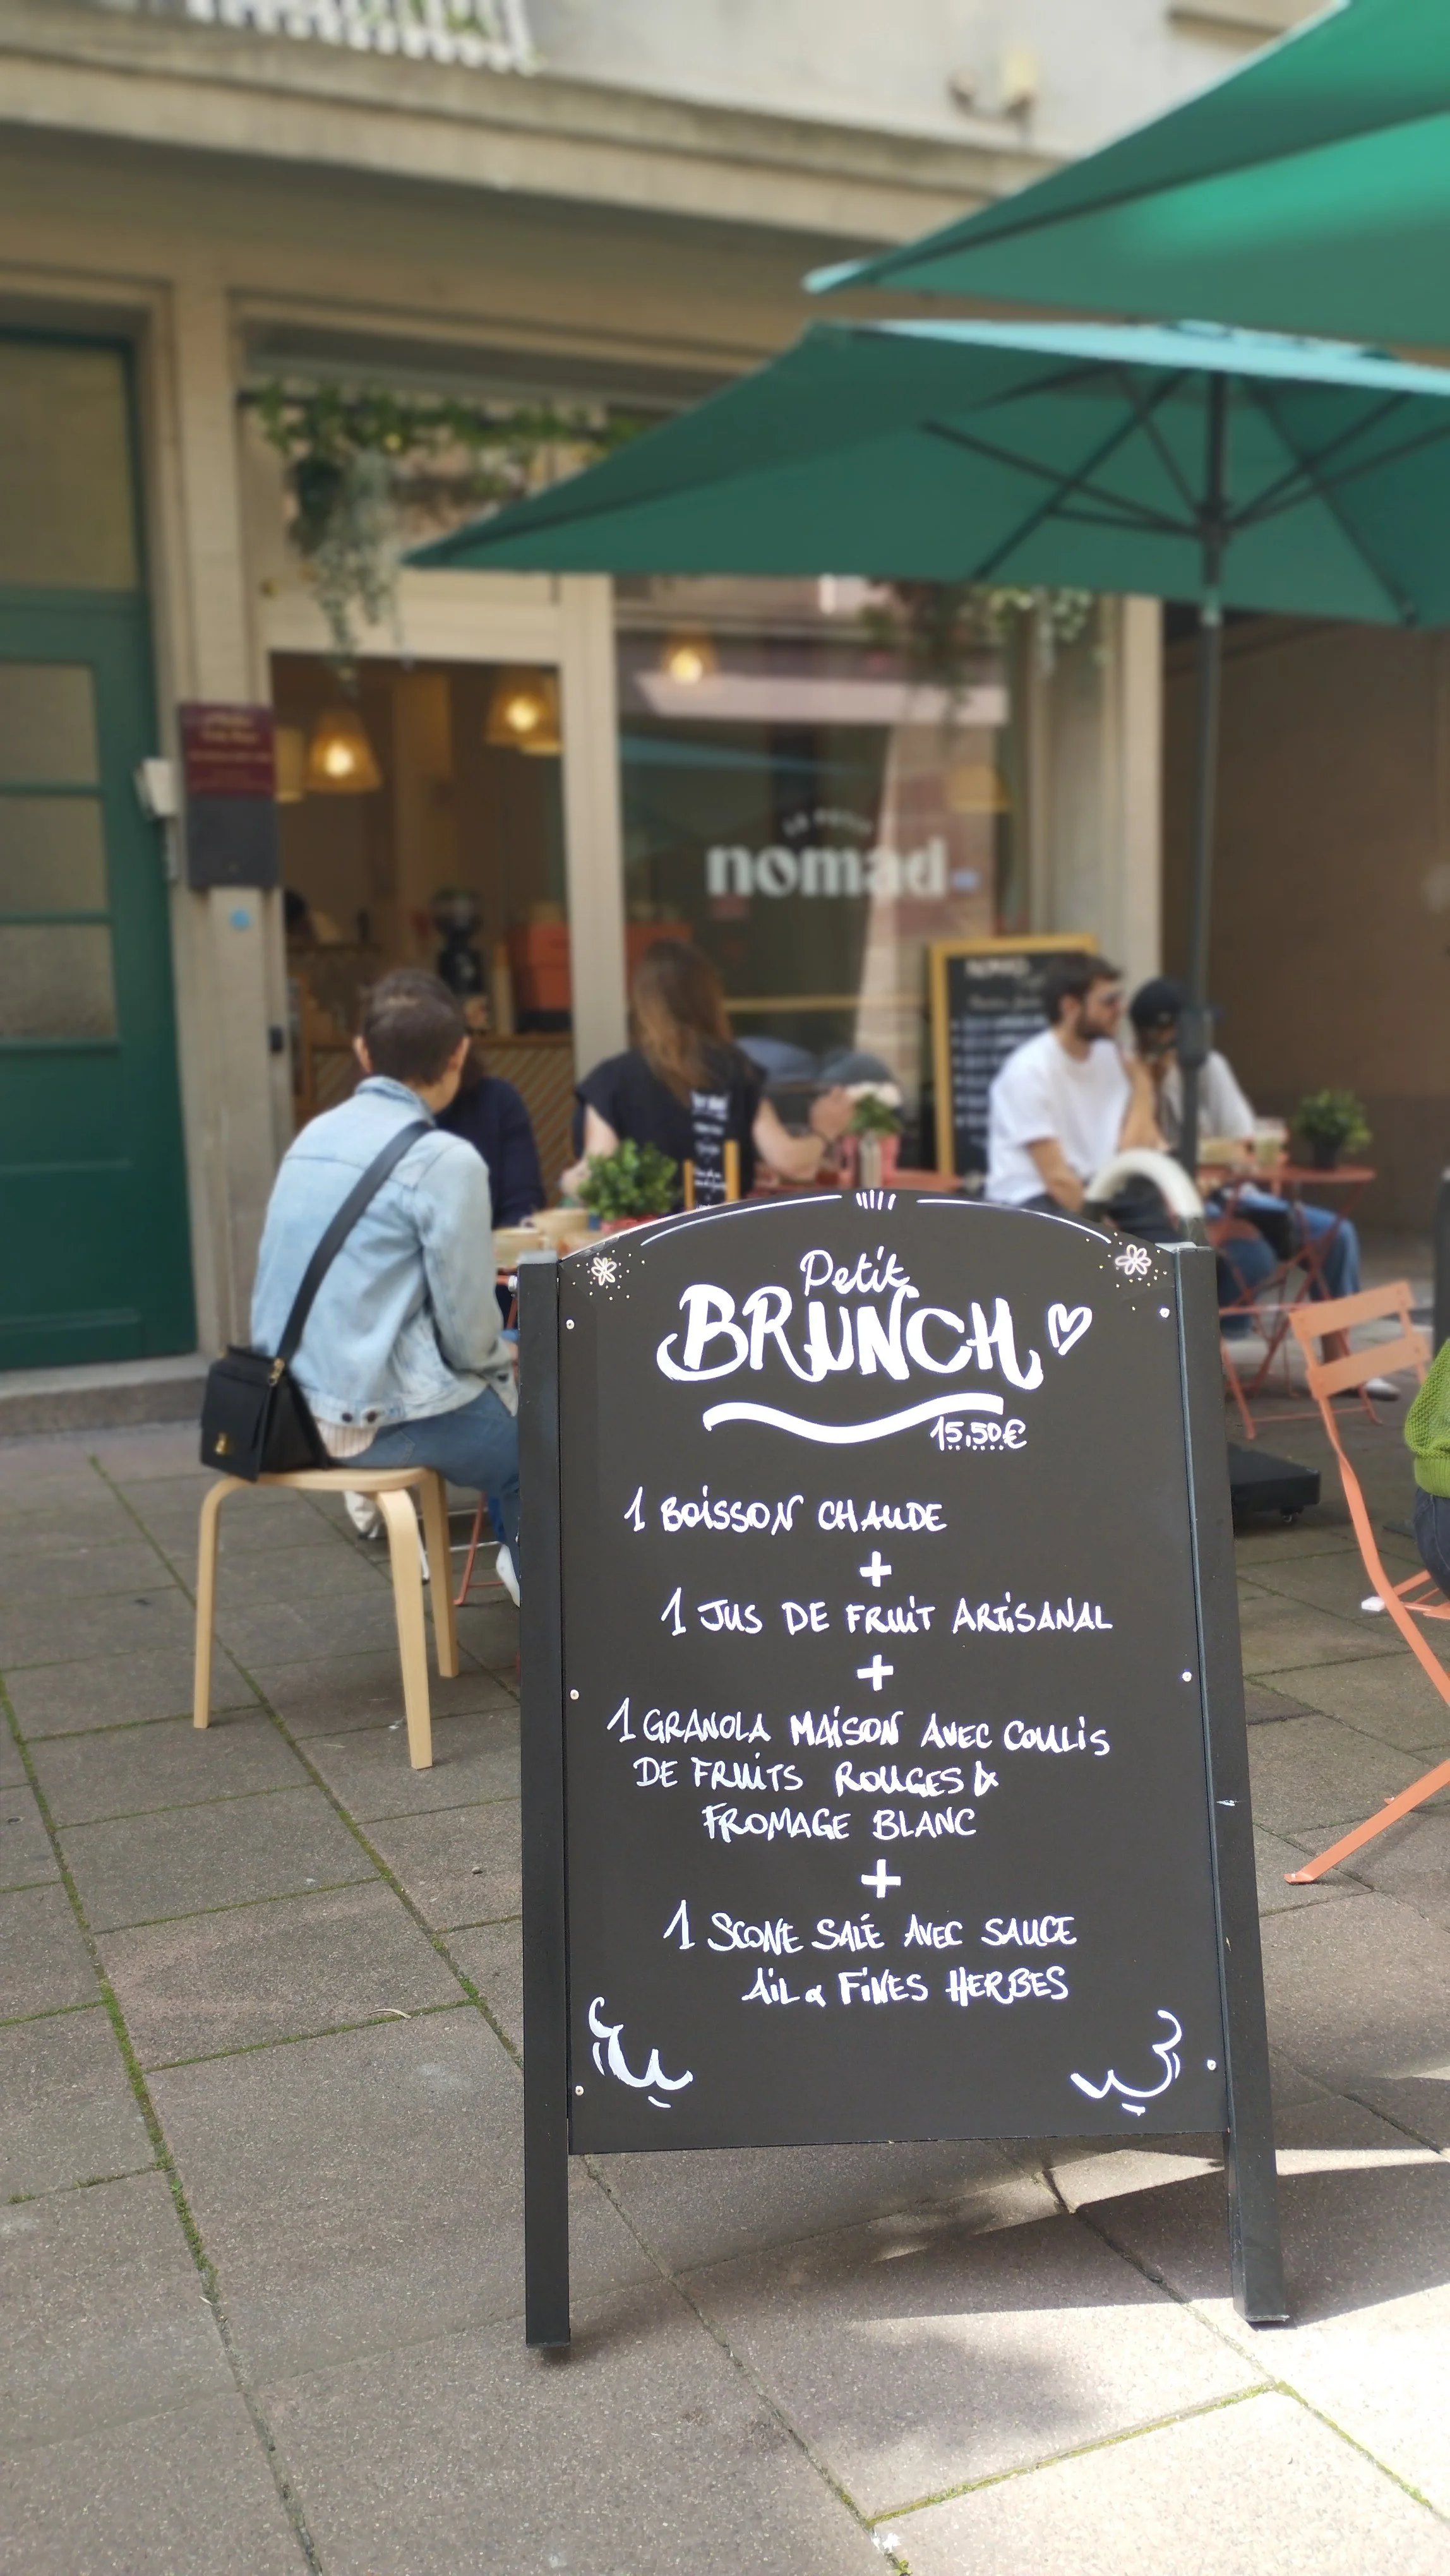 LE PETIT
nomad
NOMAD
Petit
BRUNCH
15,50€
1 BOISSON CHAUDE
+
1 JUS DE FRUIT ARTISANAL
+
1 GRANOLA MAISON AVEC COULIS
DE FRUITS ROUGES &
FROMAGE BLANC
+
1 SCONE SALÉ AVEC SAUCE
AIL & FINES HERBES